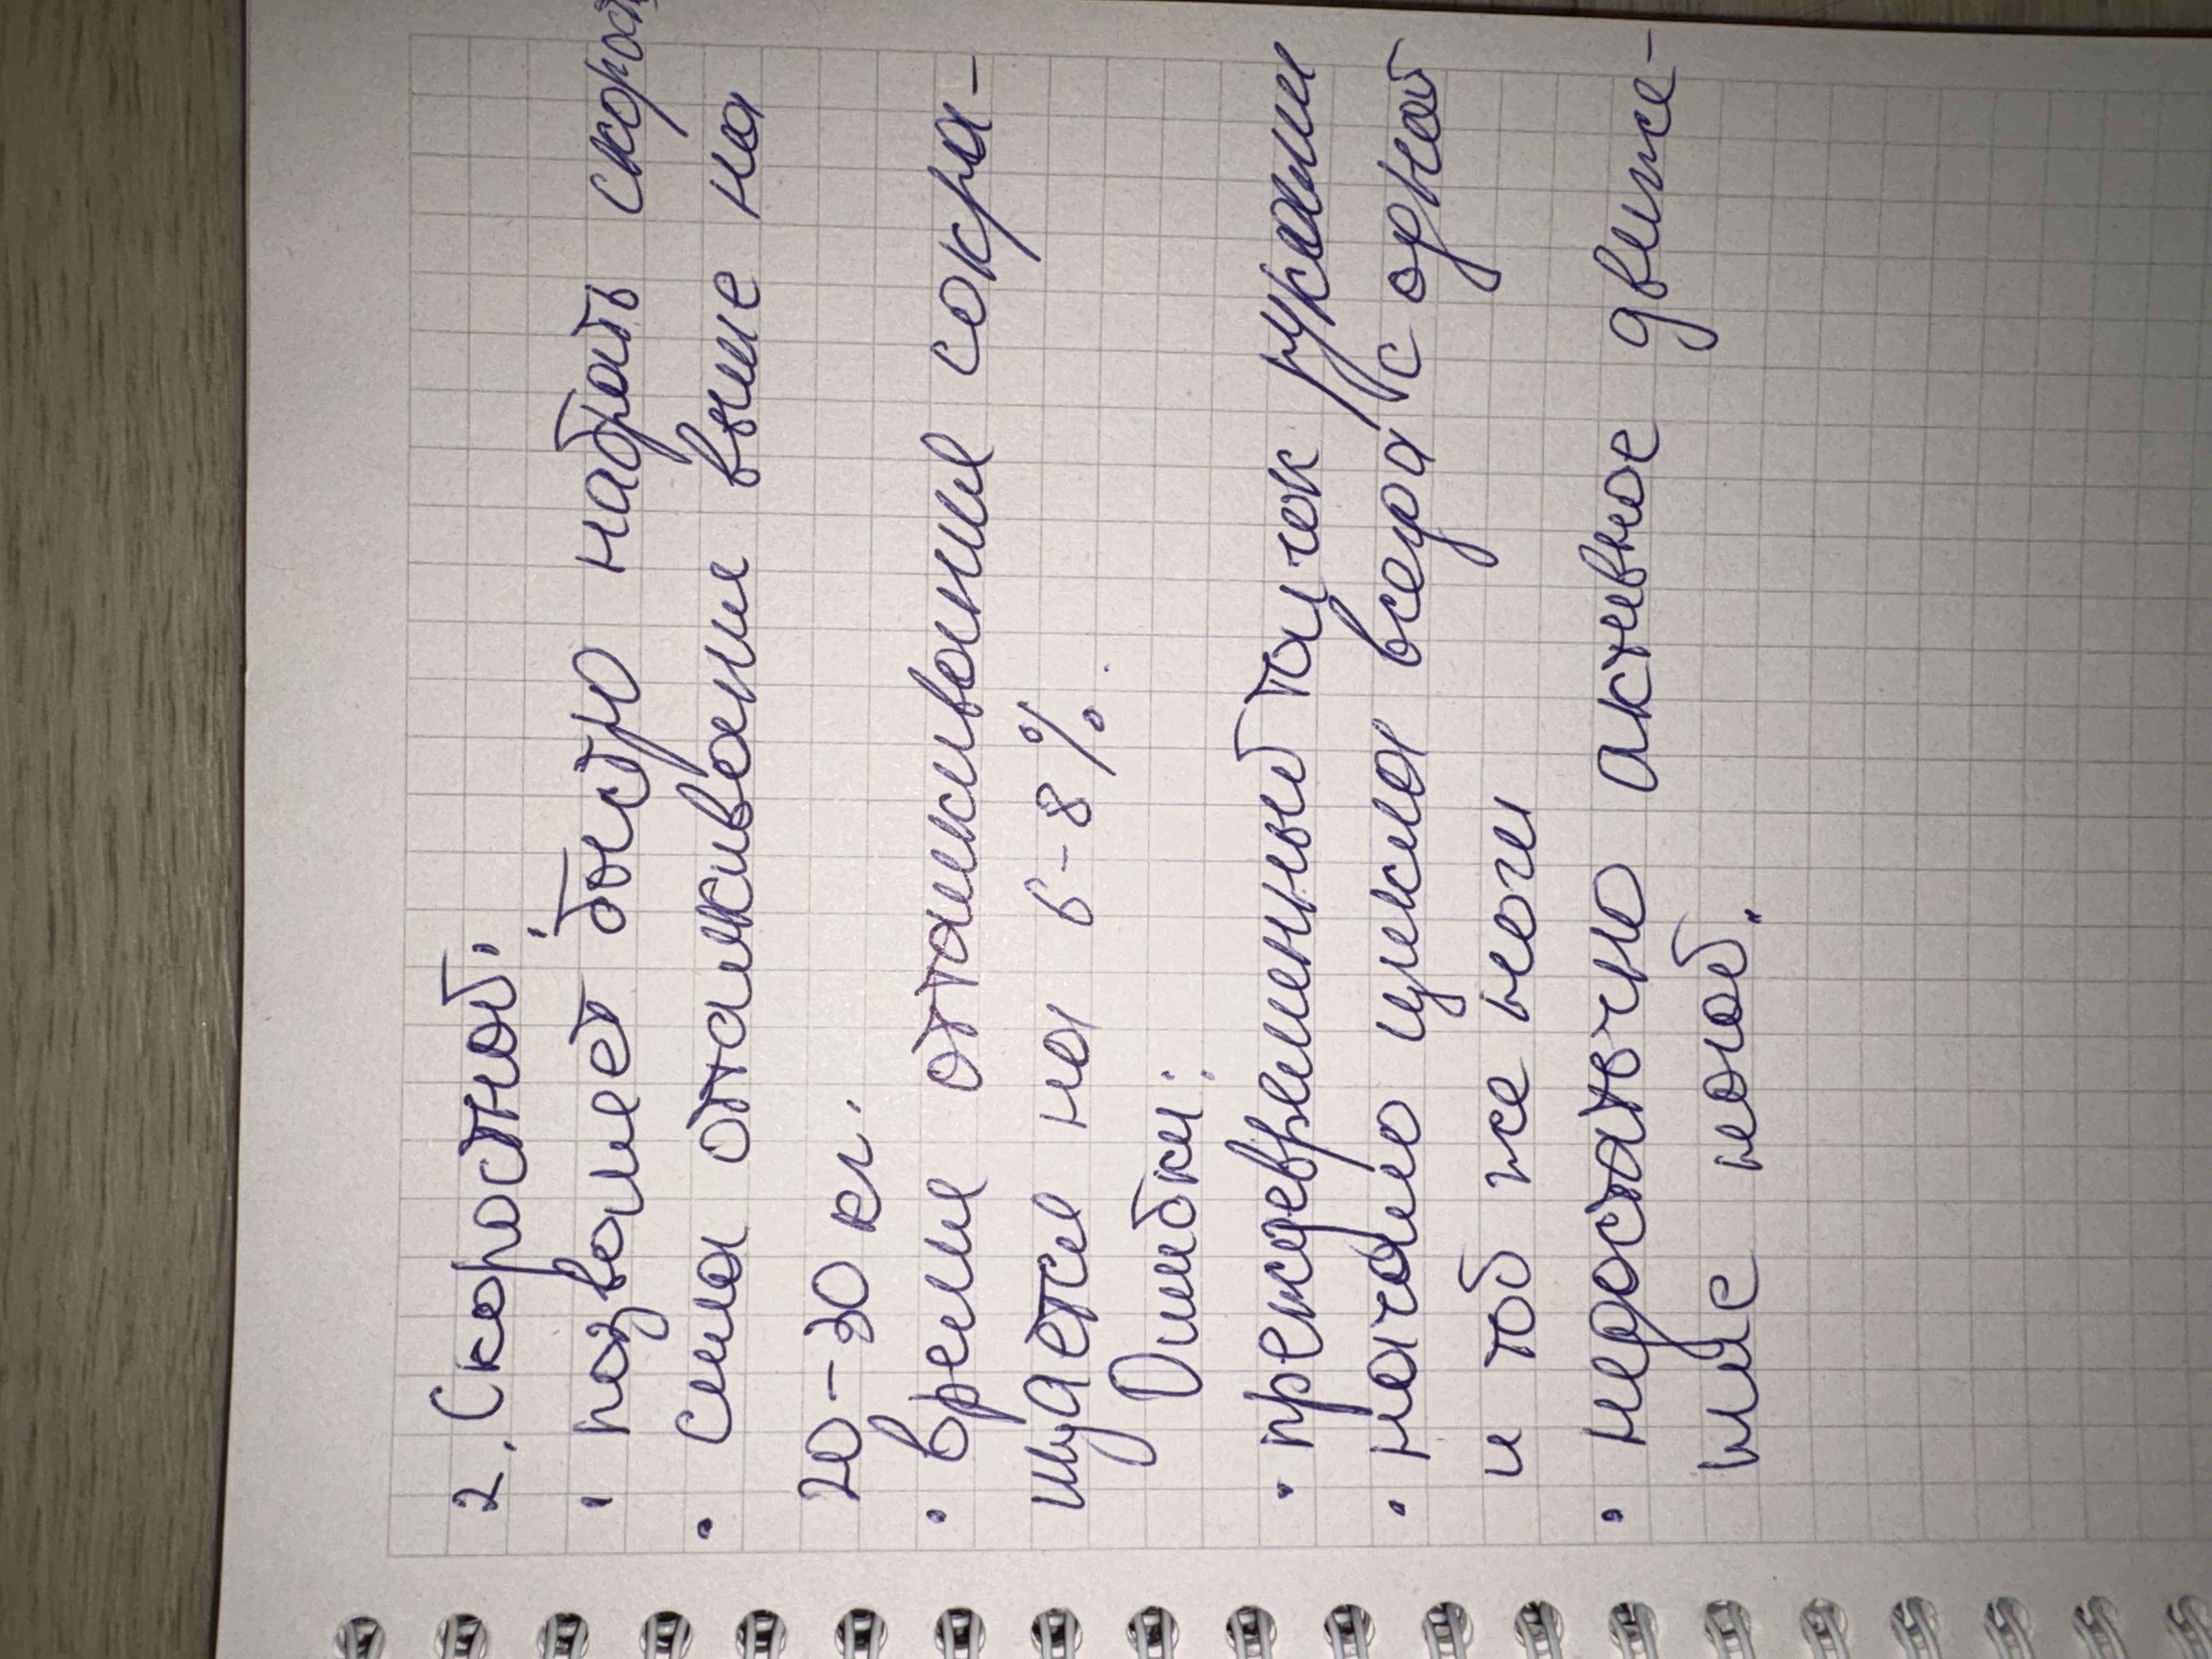 2. Скоростной:
• позволяет быстро набрать скорость
• сила отталкивания выше на
20-30 кг.
• время отталкивания сокра-
щается на 6-8%.
Ошибки:
• преждевременный толчок руками
• начало цикла всегда с одной
и той же ноги
• недостаточно активное движе-
ние ногой.